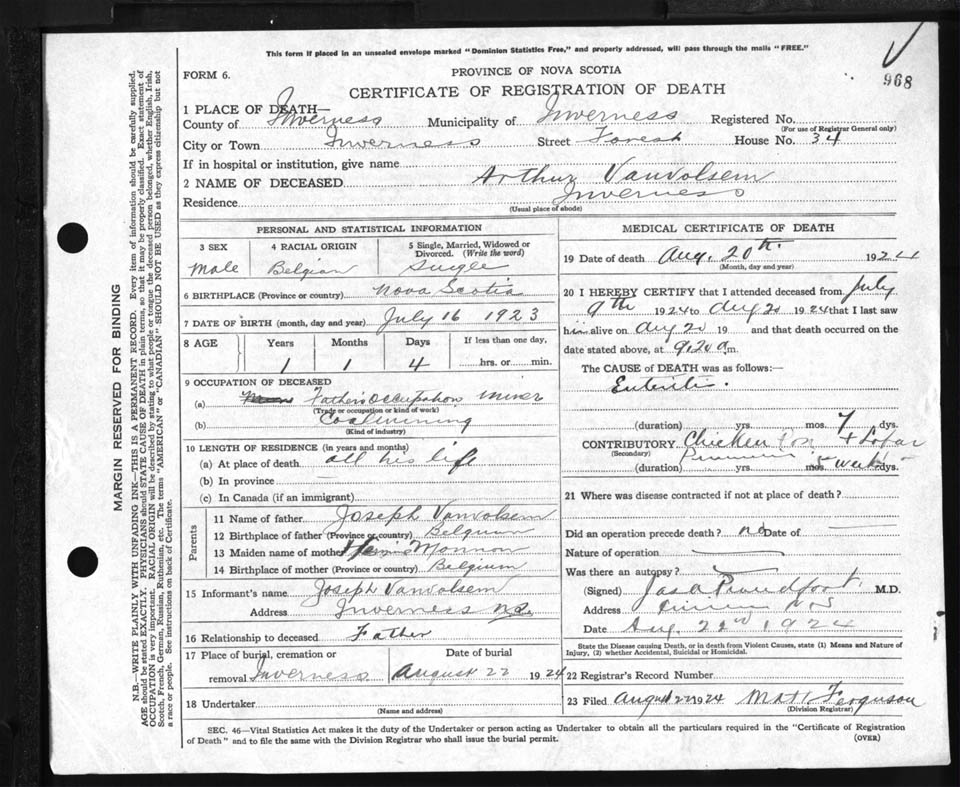 This form if placed in an unsealed envelope marked "Dominion Statistics Free," and properly addressed, will pass through the mails "FREE."
968
FORM 6.
PROVINCE OF NOVA SCOTIA
CERTIFICATE OF REGISTRATION OF DEATH
1 PLACE OF DEATH—
County of Inverness Municipality of Inverness Registered No.
(For use of Registrar General only)
City or Town Inverness Street Forest House No. 34
If in hospital or institution, give name
2 NAME OF DECEASED Arthur Vanvolsem
Residence Inverness
(Usual place of abode)
PERSONAL AND STATISTICAL INFORMATION
3 SEX 4 RACIAL ORIGIN 5 Single, Married, Widowed or Divorced. (Write the word)
Male Belgian Single
6 BIRTHPLACE (Province or country) Nova Scotia
7 DATE OF BIRTH (month, day and year) July 16 1923
8 AGE Years Months Days If less than one day,
1 1 4 hrs. or min.
9 OCCUPATION OF DECEASED
(a) Father's Occupation Miner
(Trade or occupation or kind of work)
(b) Coal mining
(Kind of industry)
10 LENGTH OF RESIDENCE (in years and months)
(a) At place of death all his life
(b) In province —
(c) In Canada (if an immigrant)
Parents
11 Name of father Joseph Vanvolsem
12 Birthplace of father (Province or country) Belgium
13 Maiden name of mother Monnon
14 Birthplace of mother (Province or country) Belgium
15 Informant's name Joseph Vanvolsem
Address Inverness N.S.
16 Relationship to deceased Father
17 Place of burial, cremation or removal Inverness
Date of burial
August 22 1924
18 Undertaker
(Name and address)
MEDICAL CERTIFICATE OF DEATH
19 Date of death Aug. 20th 1924
(Month, day and year)
20 I HEREBY CERTIFY that I attended deceased from July
9th 1924 to Aug 20 1924 that I last saw
him alive on Aug 20 19 and that death occurred on
date stated above, at 9.20 a.m.
The CAUSE of DEATH was as follows:—
Enteritis
(duration) yrs. mos. 7 dys.
CONTRIBUTORY Chicken Pox + Lobar
(Secondary)
(duration) yrs. mos. 5 weeks dys.
21 Where was disease contracted if not at place of death?
Did an operation precede death? no Date of —
Nature of operation —
Was there an autopsy? —
(Signed) Jas A Proudfoot M.D.
Address N S
Date Aug. 22nd 1924
State the Disease causing Death, or in death from Violent Causes, state (1) Means and Nature of
Injury, (2) whether Accidental, Suicidal or Homicidal.
22 Registrar's Record Number
23 Filed August 22 1924 Matt. Ferguson
(Division Registrar)
SEC. 46—Vital Statistics Act makes it the duty of the Undertaker or person acting as Undertaker to obtain all the particulars required in the "Certificate of Registration
of Death" and to file the same with the Division Registrar who shall issue the burial permit.
(OVER)
MARGIN RESERVED FOR BINDING
N.B.—WRITE PLAINLY WITH UNFADING INK—THIS IS A PERMANENT RECORD. Every item of information should be carefully supplied.
AGE should be stated EXACTLY. PHYSICIANS should STATE CAUSE OF DEATH in plain terms, so that it may be properly classified. Exact statement of
OCCUPATION is very important. RACIAL ORIGIN will be described by stating to what people or tongue the deceased person belonged, whether English, Irish,
Scotch, French, German, Russian, Ruthenian, etc. The terms "AMERICAN" or "CANADIAN" SHOULD NOT BE USED as they express citizenship but not
a race or people. See instructions on back of Certificate.